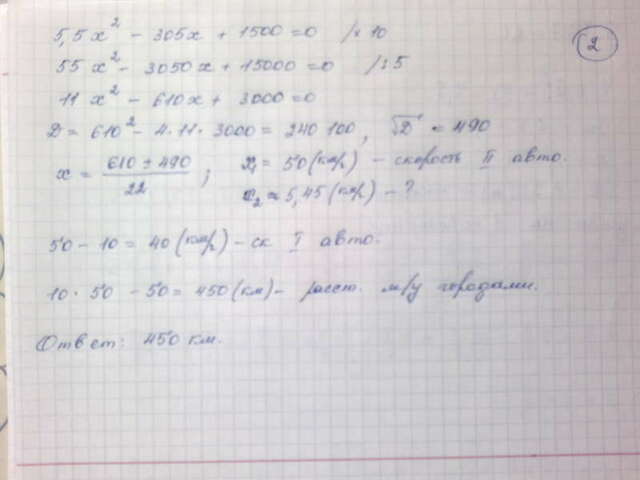 5,5x² - 305x + 1500 = 0 /×10
②
55x² - 3050x + 15000 = 0 /:5
11x² - 610x + 3000 = 0
D = 610² - 4·11·3000 = 240 100, √D = 490
x = (610 ± 490)/22 ; x₁ = 50 (км/ч) - скорость II авто.
x₂ ≈ 5,45 (км/ч) - ?
50 - 10 = 40 (км/ч) - ск I авто.
10 · 50 - 50 = 450 (км) - расст. м/у городами.
Ответ: 450 км.